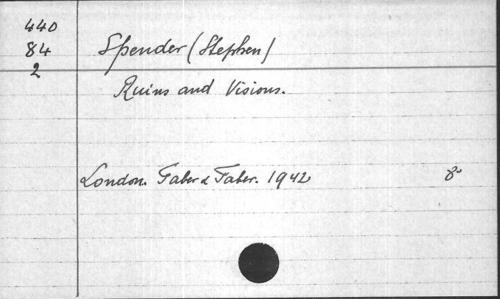 440
84
2
Spender (Stephen)
Ruins and Visions.
London. Faber & Faber. 1942 8º